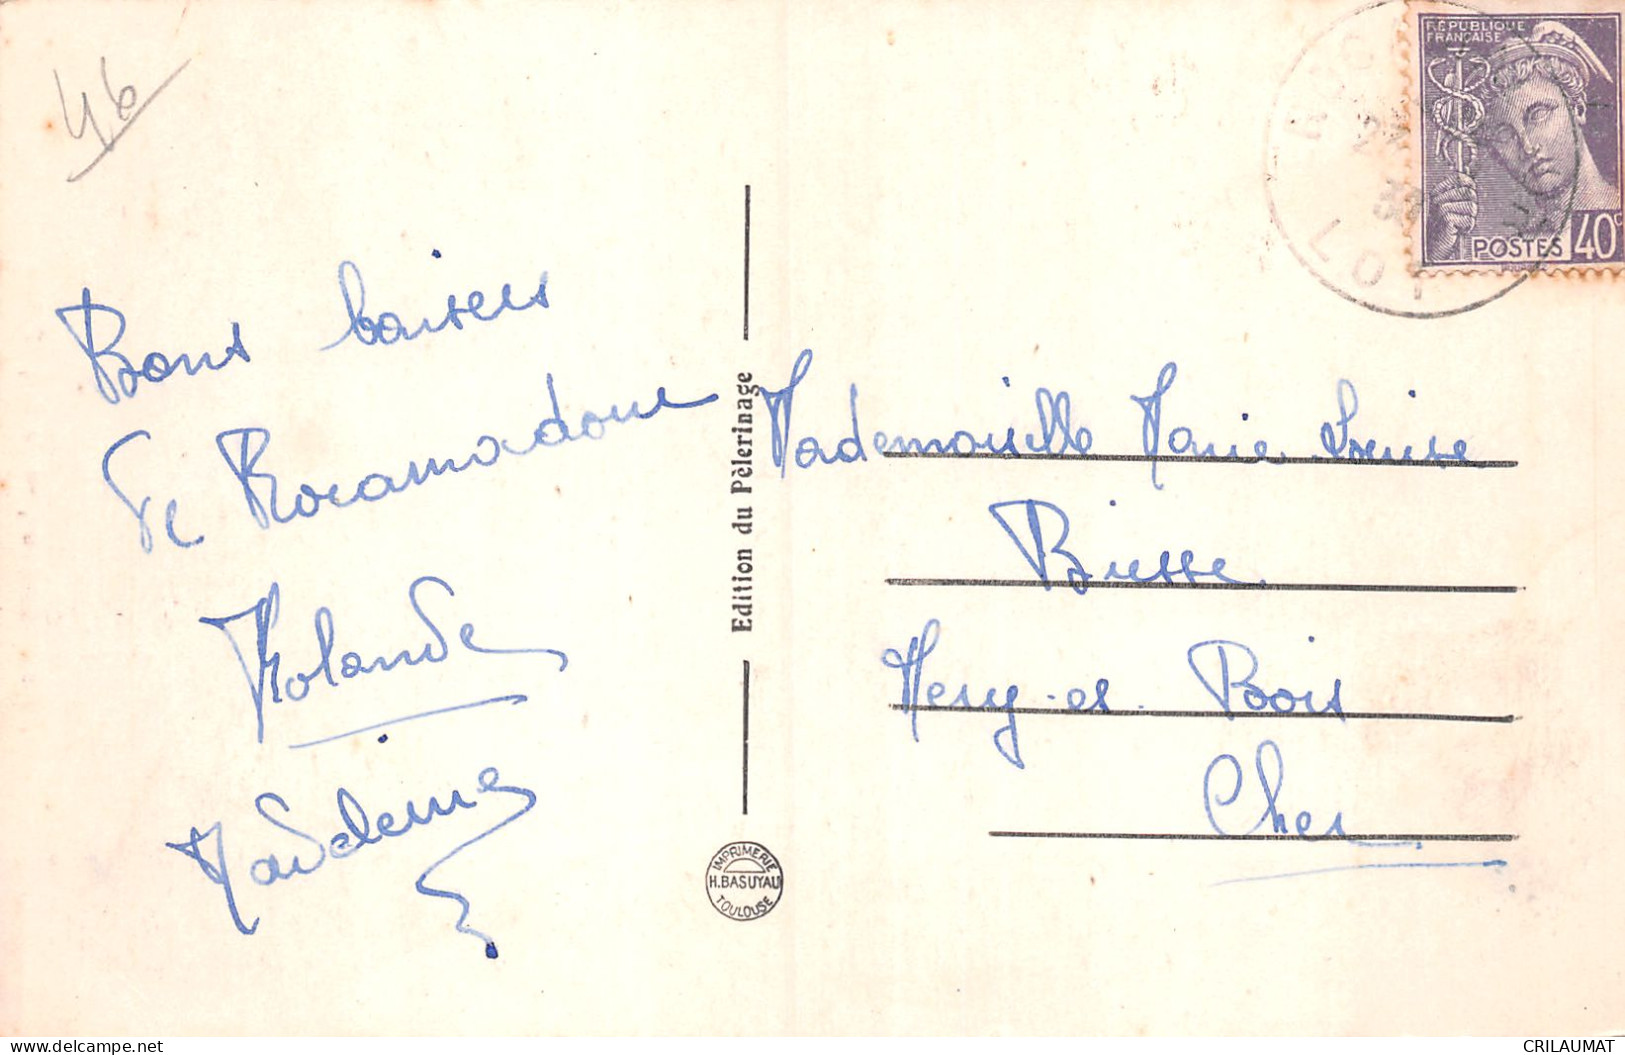 46
RÉPUBLIQUE
FRANÇAISE
POSTES 40c
LOT
Bons baisers
de Rocamadour
Yolande
Madeleine
Edition du Pèlerinage
IMPRIMERIE
H. BASUYAU
TOULOUSE
Mademoiselle Marie Louise
Biesse
Mery-es-Bois
Cher
CRILAUMAT